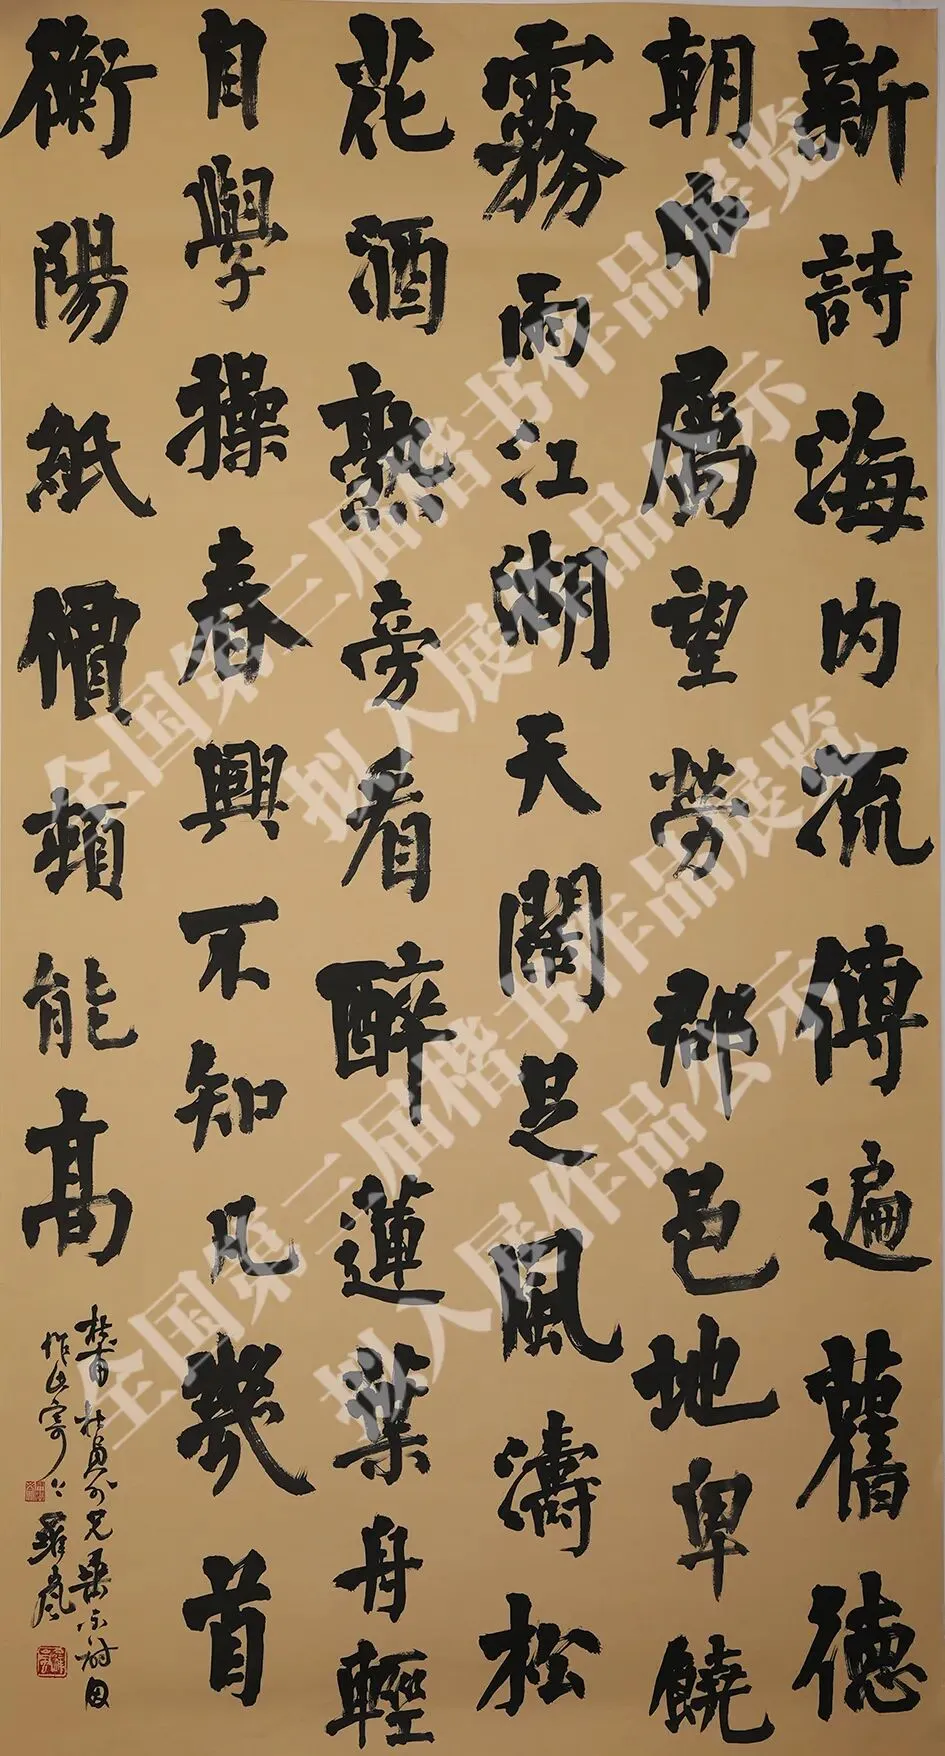 新詩海内流傳遍舊德
朝中屬望勞郡邑地卑饒
霧雨江湖天闊足風濤松
花酒熟旁看醉蓮葉舟輕
自學操春興不知凡幾首
衡陽紙價頓能高
杜員外兄垂示詩因
作此寄
全国第三届楷书作品展览
拟入展作品公示
全国第三届楷书作品展览
拟入展作品公示